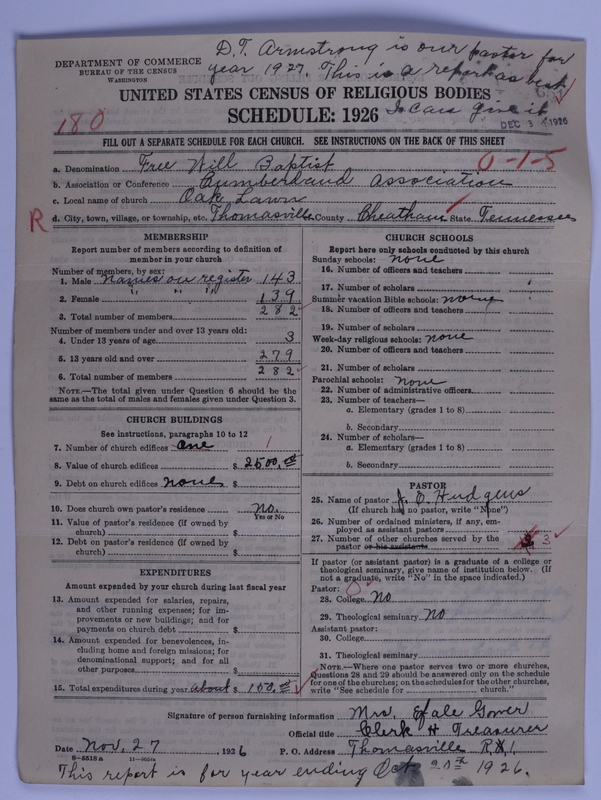 D.T. Armstrong is our pastor for
year 1927. This is a report as best
I can give it
DEPARTMENT OF COMMERCE
BUREAU OF THE CENSUS
WASHINGTON
UNITED STATES CENSUS OF RELIGIOUS BODIES
SCHEDULE: 1926
180
DEC 3 1926
FILL OUT A SEPARATE SCHEDULE FOR EACH CHURCH. SEE INSTRUCTIONS ON THE BACK OF THIS SHEET
0-1-5
a. Denomination Free Will Baptist
b. Association or Conference Cumberland Association
c. Local name of church Oak Lawn
R d. City, town, village, or township, etc. Thomasville County Cheatham State Tennessee
MEMBERSHIP
Report number of members according to definition of
member in your church
Number of members, by sex:
1. Male Names on register 143
2. Female " " " 139
3. Total number of members 282
Number of members under and over 13 years old:
4. Under 13 years of age 3
5. 13 years old and over 279
6. Total number of members 282
NOTE.—The total given under Question 6 should be the
same as the total of males and females given under Question 3.
CHURCH BUILDINGS
See instructions, paragraphs 10 to 12
7. Number of church edifices one 1
8. Value of church edifices $ 2500.00
9. Debt on church edifices none $
10. Does church own pastor's residence no.
Yes or No
11. Value of pastor's residence (if owned by
church) $
12. Debt on pastor's residence (if owned by
church) $
EXPENDITURES
Amount expended by your church during last fiscal year
13. Amount expended for salaries, repairs,
and other running expenses; for im-
provements or new buildings; and for
payments on church debt $
14. Amount expended for benevolences, in-
cluding home and foreign missions; for
denominational support; and for all
other purposes $
15. Total expenditures during year about $ 150.00
CHURCH SCHOOLS
Report here only schools conducted by this church
Sunday schools: none
16. Number of officers and teachers
17. Number of scholars
Summer vacation Bible schools: none
18. Number of officers and teachers
19. Number of scholars
Week-day religious schools: none
20. Number of officers and teachers
21. Number of scholars
Parochial schools: none
22. Number of administrative officers
23. Number of teachers—
a. Elementary (grades 1 to 8)
b. Secondary
24. Number of scholars—
a. Elementary (grades 1 to 8)
b. Secondary
PASTOR
25. Name of pastor J. E. Hudgens
(If church has no pastor, write "None")
26. Number of ordained ministers, if any, em-
ployed as assistant pastors
27. Number of other churches served by the
pastor or his assistants 3
If pastor (or assistant pastor) is a graduate of a college or
theological seminary, give name of institution below. (If
not a graduate, write "No" in the space indicated.)
Pastor: 0
28. College No
29. Theological seminary No
Assistant pastor:
30. College
31. Theological seminary
NOTE.—Where one pastor serves two or more churches,
Questions 28 and 29 should be answered only on the schedule
for one of the churches; on the schedules for the other churches,
write "See schedule for church."
Signature of person furnishing information Mrs. Gower
Official title Clerk & Treasurer
Date Nov. 27, 1926 P. O. Address Thomasville R 1.
8-5518a
This report is for year ending Oct 1926.